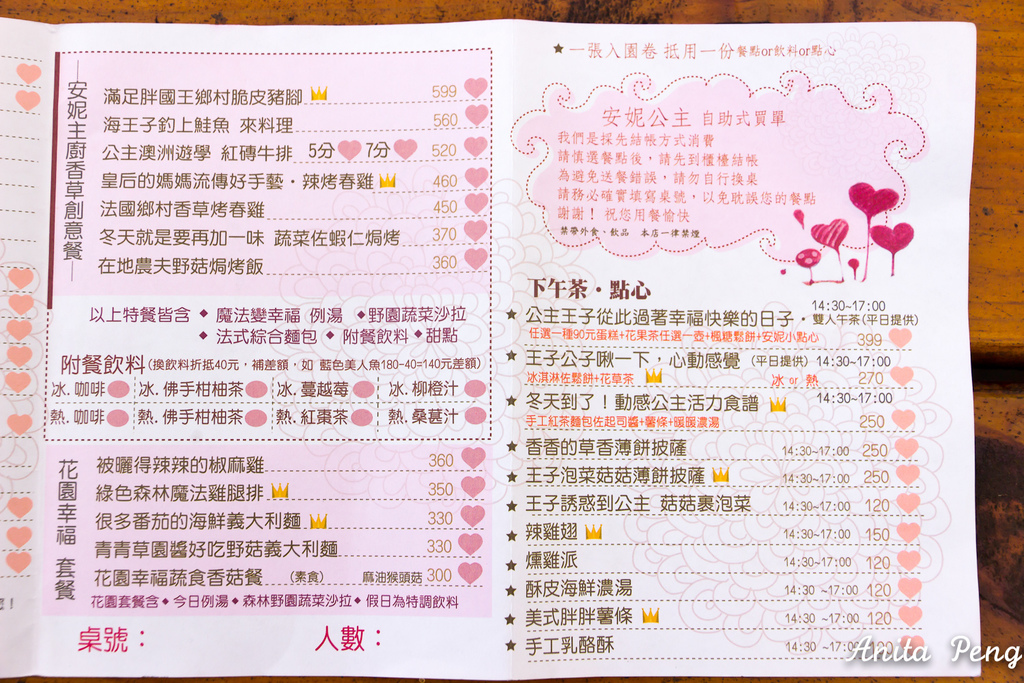 安妮主廚香草創意餐
滿足胖國王鄉村脆皮豬腳 599
海王子釣上鮭魚 來料理 560
公主澳洲遊學 紅磚牛排 5分 7分 520
皇后的媽媽流傳好手藝·辣烤春雞 460
法國鄉村香草烤春雞 450
冬天就是要再加一味 蔬菜佐蝦仁焗烤 370
在地農夫野菇焗烤飯 360
以上特餐皆含 ◆ 魔法變幸福 例湯 ◆野園蔬菜沙拉
◆ 法式綜合麵包 ◆ 附餐飲料 ◆甜點
附餐飲料(換飲料折抵40元，補差額，如 藍色美人魚180-40=140元差額)
冰.咖啡 冰.佛手柑柚茶 冰.蔓越莓 冰.柳橙汁
熱.咖啡 熱.佛手柑柚茶 熱.紅棗茶 熱.桑葚汁
花園幸福 套餐
被曬得辣辣的椒麻雞 360
綠色森林魔法雞腿排 350
很多番茄的海鮮義大利麵 330
青青草園醬好吃野菇義大利麵 330
花園幸福蔬食香菇餐 (素食) 麻油猴頭菇 300
花園套餐含 ◆ 今日例湯 ◆ 森林野園蔬菜沙拉 ◆ 假日為特調飲料
桌號： 人數：
★ 一張入園卷 抵用一份餐點or飲料or點心
安妮公主 自助式買單
我們是採先結帳方式消費
請慎選餐點後，請先到櫃檯結帳
為避免送餐錯誤，請勿自行換桌
請務必確實填寫桌號，以免耽誤您的餐點
謝謝！ 祝您用餐愉快
禁帶外食、飲品 本店一律禁煙
下午茶·點心
14:30~17:00
★ 公主王子從此過著幸福快樂的日子·雙人午茶(平日提供)
任選一種90元蛋糕+花果茶任選一壺+楓糖鬆餅+安妮小點心 399
★ 王子公子啾一下，心動感覺 (平日提供) 14:30~17:00
冰淇淋佐鬆餅+花草茶 冰 or 熱 270
★ 冬天到了！動感公主活力食譜 14:30~17:00
手工紅茶麵包佐起司醬+薯條+暖暖濃湯 250
★ 香香的草香薄餅披薩 14:30~17:00 250
★ 王子泡菜菇菇薄餅披薩 14:30~17:00 250
★ 王子誘惑到公主 菇菇裹泡菜 14:30~17:00 120
★ 辣雞翅 14:30~17:00 150
★ 燻雞派 14:30~17:00 120
★ 酥皮海鮮濃湯 14:30 ~17:00 120
★ 美式胖胖薯條 14:30 ~17:00 120
★ 手工乳酪酥 14:30 ~17:00
Anita Peng